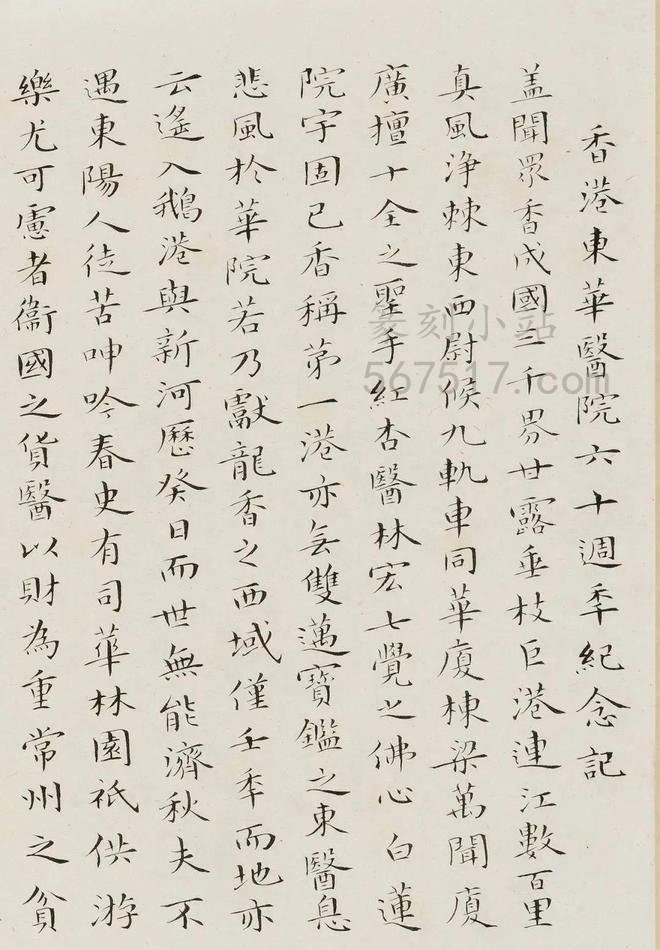 香港東華醫院六十週季紀念記
盖聞眾香成國三千界甘露垂枝巨港連江數百里
真風浄棘東西尉候九軌車同華廈棟梁萬聞廈
廣擅十全之聖手紅杏醫林宏七覺之佛心白蓮
院宇固已香稱苐一港亦無雙邁寶鑑之東醫息
悲風於華院若乃獻龍香之西域僅壬季而地亦
云遙入鵝港與新河歷癸日而世無能濟秋夫不
遇東陽人徒苦呻吟春史有司華林園祇供游
樂尤可慮者衞國之貨醫以財為重常州之貧
篆刻小站
567517.com